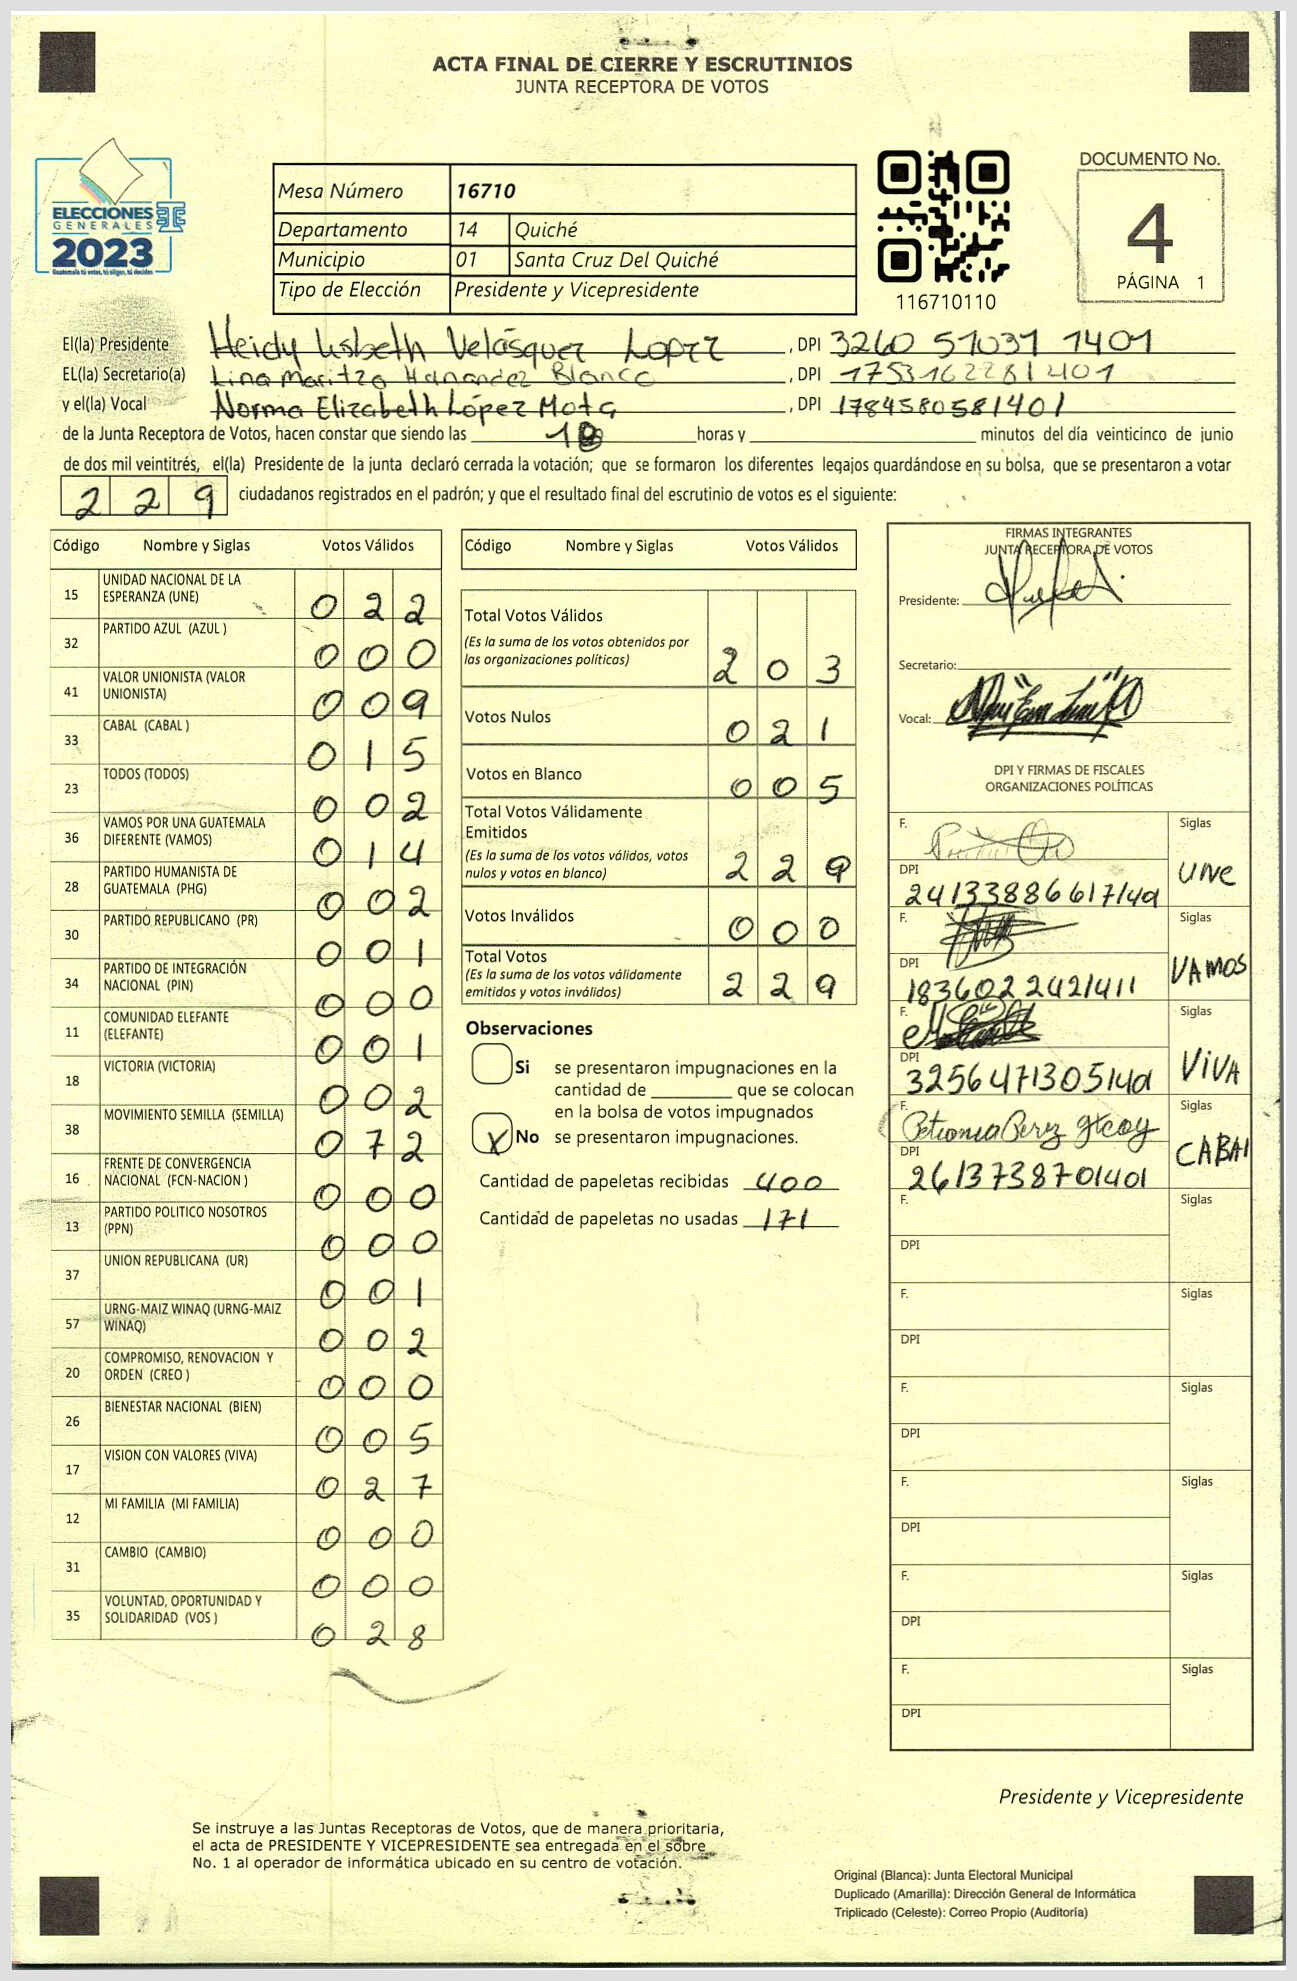 ACTA FINAL DE CIERRE Y ESCRUTINIOS
JUNTA RECEPTORA DE VOTOS
ELECCIONES
GENERALES
2023
Guatemala tú votas, tú eliges, tú decides
Mesa Número 16710
Departamento 14 Quiché
Municipio 01 Santa Cruz Del Quiché
Tipo de Elección Presidente y Vicepresidente
116710110
DOCUMENTO No.
4
PÁGINA 1
El(la) Presidente Heidy Lisbeth Velásquez Lopez , DPI 3260 51031 1401
EL(la) Secretario(a) Lina Maritza Hernandez Blanco , DPI 1753162281401
y el(la) Vocal Norma Elizabeth López Mota , DPI 1784580581401
de la Junta Receptora de Votos, hacen constar que siendo las 18 horas y minutos del día veinticinco de junio
de dos mil veintitrés, el(la) Presidente de la junta declaró cerrada la votación; que se formaron los diferentes legajos guardándose en su bolsa, que se presentaron a votar
229 ciudadanos registrados en el padrón; y que el resultado final del escrutinio de votos es el siguiente:
Código Nombre y Siglas Votos Válidos
15 UNIDAD NACIONAL DE LA ESPERANZA (UNE) 022
32 PARTIDO AZUL (AZUL ) 000
41 VALOR UNIONISTA (VALOR UNIONISTA) 009
33 CABAL (CABAL ) 015
23 TODOS (TODOS) 002
36 VAMOS POR UNA GUATEMALA DIFERENTE (VAMOS) 014
28 PARTIDO HUMANISTA DE GUATEMALA (PHG) 002
30 PARTIDO REPUBLICANO (PR) 001
34 PARTIDO DE INTEGRACIÓN NACIONAL (PIN) 000
11 COMUNIDAD ELEFANTE (ELEFANTE) 001
18 VICTORIA (VICTORIA) 002
38 MOVIMIENTO SEMILLA (SEMILLA) 072
16 FRENTE DE CONVERGENCIA NACIONAL (FCN-NACION ) 000
13 PARTIDO POLITICO NOSOTROS (PPN) 000
37 UNION REPUBLICANA (UR) 001
57 URNG-MAIZ WINAQ (URNG-MAIZ WINAQ) 002
20 COMPROMISO, RENOVACION Y ORDEN (CREO ) 000
26 BIENESTAR NACIONAL (BIEN) 005
17 VISION CON VALORES (VIVA) 027
12 MI FAMILIA (MI FAMILIA) 000
31 CAMBIO (CAMBIO) 000
35 VOLUNTAD, OPORTUNIDAD Y SOLIDARIDAD (VOS ) 028
Código Nombre y Siglas Votos Válidos
Total Votos Válidos
(Es la suma de los votos obtenidos por
las organizaciones políticas) 203
Votos Nulos 021
Votos en Blanco 005
Total Votos Válidamente
Emitidos
(Es la suma de los votos válidos, votos
nulos y votos en blanco) 229
Votos Inválidos 000
Total Votos
(Es la suma de los votos válidamente
emitidos y votos inválidos) 229
Observaciones
Si se presentaron impugnaciones en la
cantidad de que se colocan
en la bolsa de votos impugnados
X No se presentaron impugnaciones.
Cantidad de papeletas recibidas 400
Cantidad de papeletas no usadas 171
FIRMAS INTEGRANTES
JUNTA RECEPTORA DE VOTOS
Presidente:
Secretario:
Vocal:
DPI Y FIRMAS DE FISCALES
ORGANIZACIONES POLÍTICAS
F. Siglas
DPI UNE
24133886617140
F. Siglas
DPI VAMOS
1836022421411
F. Siglas
DPI VIVA
3256471305140
F. Petronia Perez Siglas
DPI CABAl
2613738701401
F. Siglas
DPI
F. Siglas
DPI
F. Siglas
DPI
F. Siglas
DPI
F. Siglas
DPI
F. Siglas
DPI
Presidente y Vicepresidente
Se instruye a las Juntas Receptoras de Votos, que de manera prioritaria,
el acta de PRESIDENTE Y VICEPRESIDENTE sea entregada en el sobre
No. 1 al operador de informática ubicado en su centro de votación.
Original (Blanca): Junta Electoral Municipal
Duplicado (Amarilla): Dirección General de Informática
Triplicado (Celeste): Correo Propio (Auditoría)